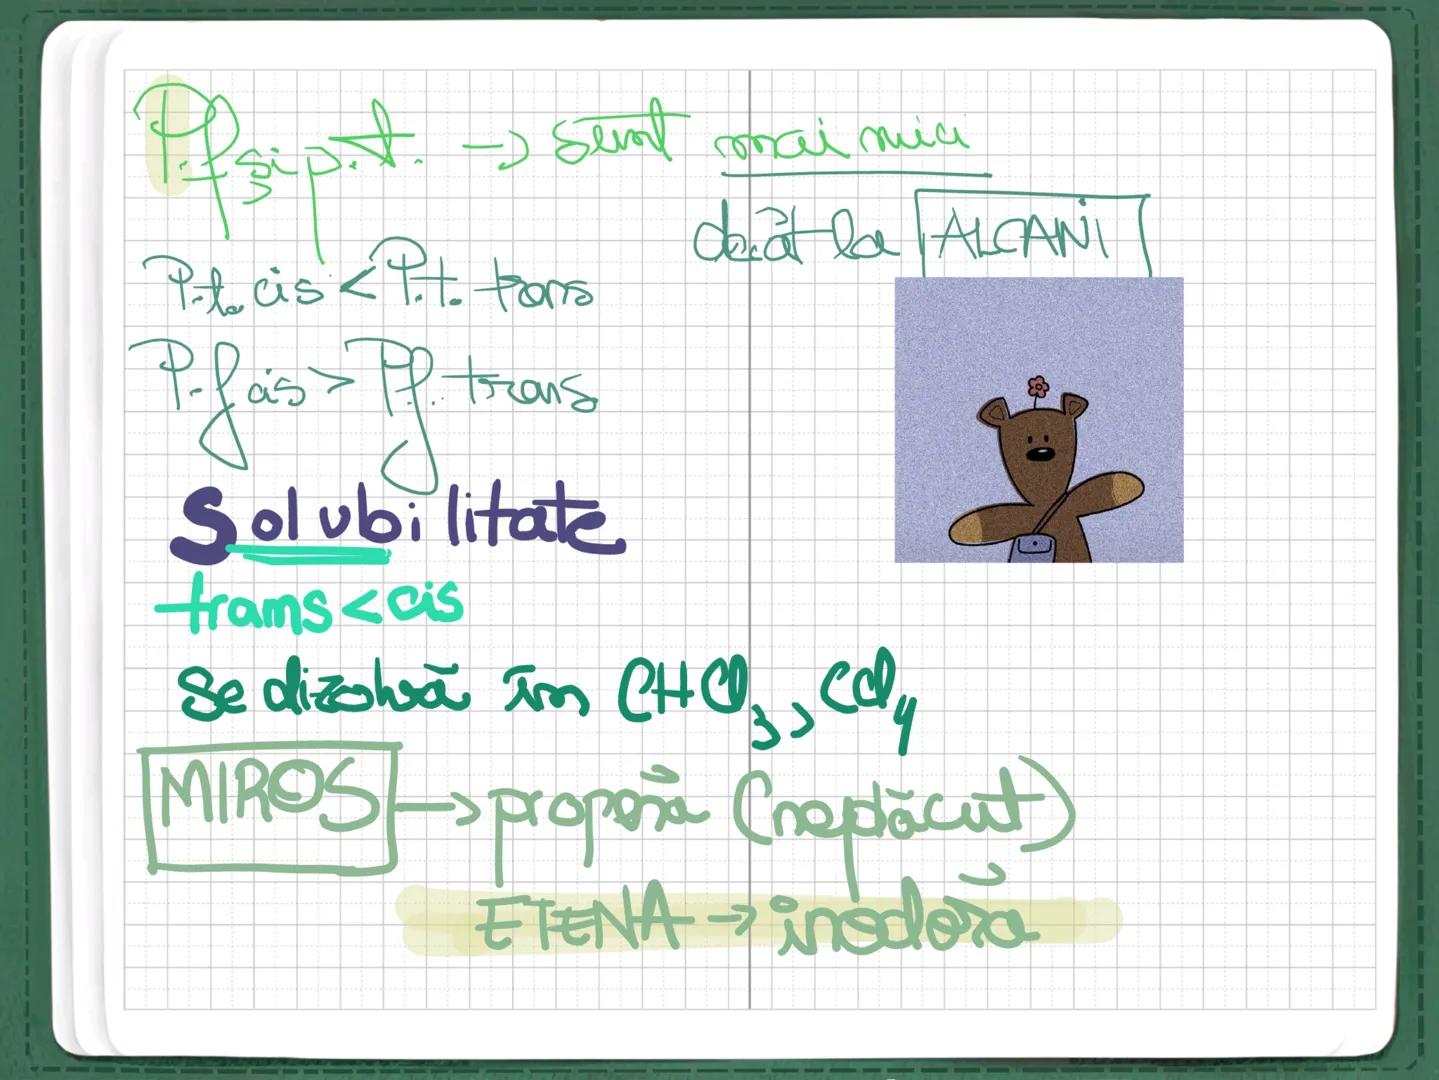 P.f și p.t. → sunt mai mici
decât la ALCANI
P.t. cis < P.t. trans
P.f cis > P.f. trans
Solubilitate
trans < cis
se dizolvă în CHCl₃, CCl₄
MIROS → proprău (neplăcut)
ETENA → inodoră